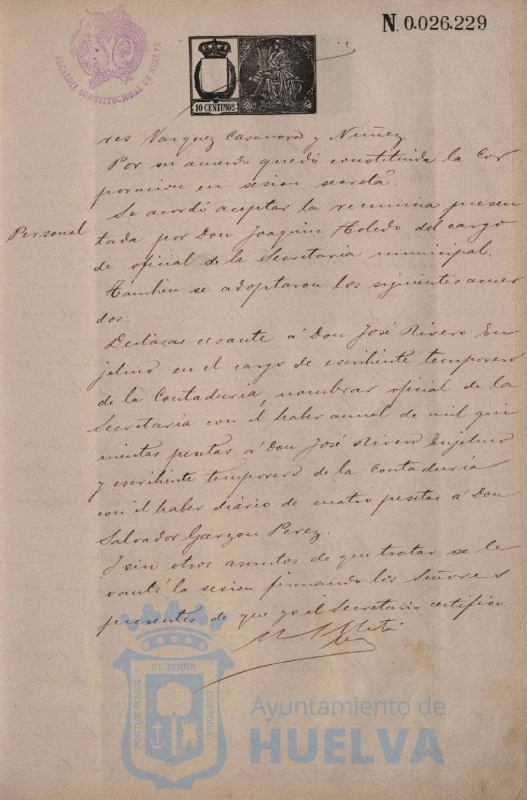 N. 0.026.229
ALCALDIA CONSTITUCIONAL DE HUELVA
10 CENTIMOS
res Vazquez Casanova y Nuñez
Por su acuerdo quedó constituida la Cor
poracion en sesion secreta.
Personal
Se acordó aceptar la renuncia presen
tada por Don Joaquin Toledo del cargo
de oficial de la Secretaria municipal.
Tambien se adoptaron los siguientes acuer
dos.
Declarar cesante á Don José Rivero
en el cargo de escribiente temporero
de la Contaduria, nombrar oficial de la
Secretaria con el haber anual de mil qui
nientas pesetas á Don José Rivero
y escribiente temporero de la Contaduria
con el haber diario de cuatro pesetas á Don
Salvador Garzon Perez.
Y sin otros asuntos de que tratar se le
vantó la sesion firmando los Señores
presentes de que yo el Secretario certifico.
ET TERRA
PORTUS MARIS
CUSTODIA
Ayuntamiento de
HUELVA